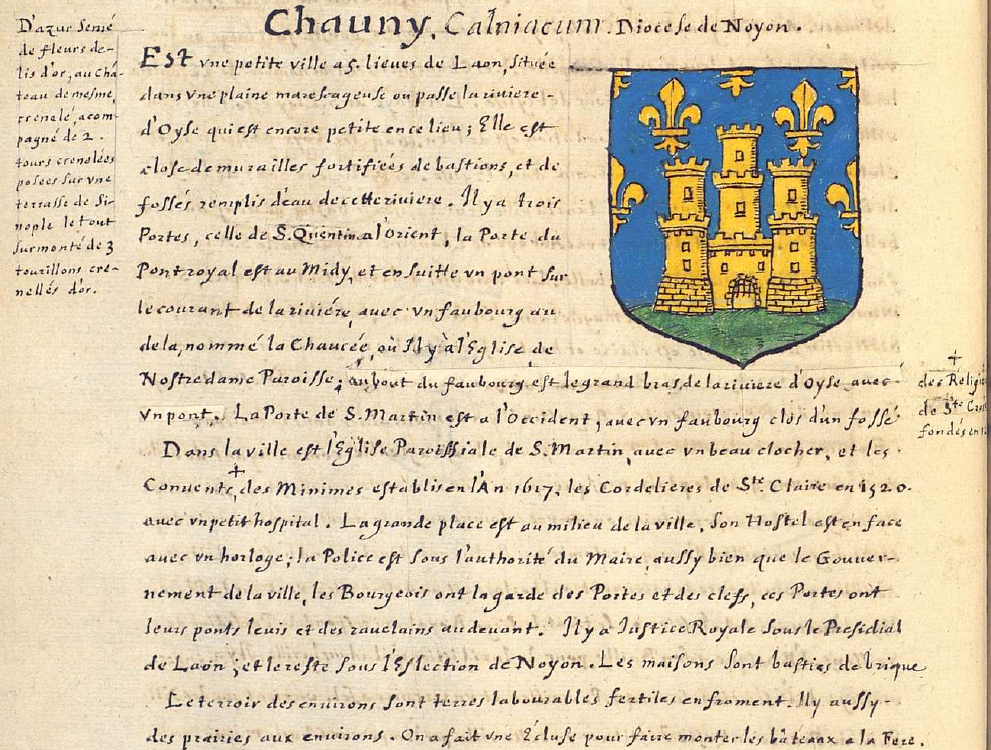 Chauny, Calniacum. Diocese de Noyon.
D'azur semé
de fleurs de-
lis d'or, au châ-
teau de mesme,
crenelé, acom-
pagné de 2.
tours crenelées
posées sur vne
terrasse de Si-
nople le tout
surmonté de 3
tourillons cre-
nellés d'or.
Est vne petite ville a 5. lieues de Laon, située
dans vne plaine marescageuse ou passe la riviere-
d'Oyse qui est encore petite en ce lieu; Elle est
close de murailles fortifiées de bastions, et de
fossés remplis d'eau de cette riviere. Il y a trois
Portes, celle de S. Quentin a l'orient, la Porte du
Pont royal est au Midy, et en suitte vn pont sur
le courant de la riviére, avec vn faubourg au
dela, nommé la Chaucée, où Il y a l'Eglise de
Nostre dame Paroisse; au bout du faubourg est le grand bras de la riviere d'Oyse avec
vn pont. La Porte de S. Martin est a l'Occident, avec vn faubourg clos d'un fossé
Dans la ville est l'Eglise Paroissiale de S. Martin, avec vn beau clocher, et les
Conuents + des Minimes establis en l'An 1617, les Cordelieres de Ste. Claire en 1520.
avec vn petit hospital. La grande place est au milieu de la ville, son Hostel est en face
avec vn horloge; la Police est sous l'authorité du Maire, aussy bien que le Gouver-
nement de la ville, les Bourgeois ont la garde des Portes et des clefs, ces Portes ont
leurs ponts leuis et des rauelains au deuant. Il y a Justice Royale sous le Presidial
de Laon; et le reste sous l'Eslection de Noyon. Les maisons sont basties de brique
Le terroir des environs sont terres labourables fertiles en froment. Il y a aussy-
des prairies aux environs. On a fait vne Ecluse pour faire monter les bateaux a la Fere.
+
des Religi
de Ste
fondés en